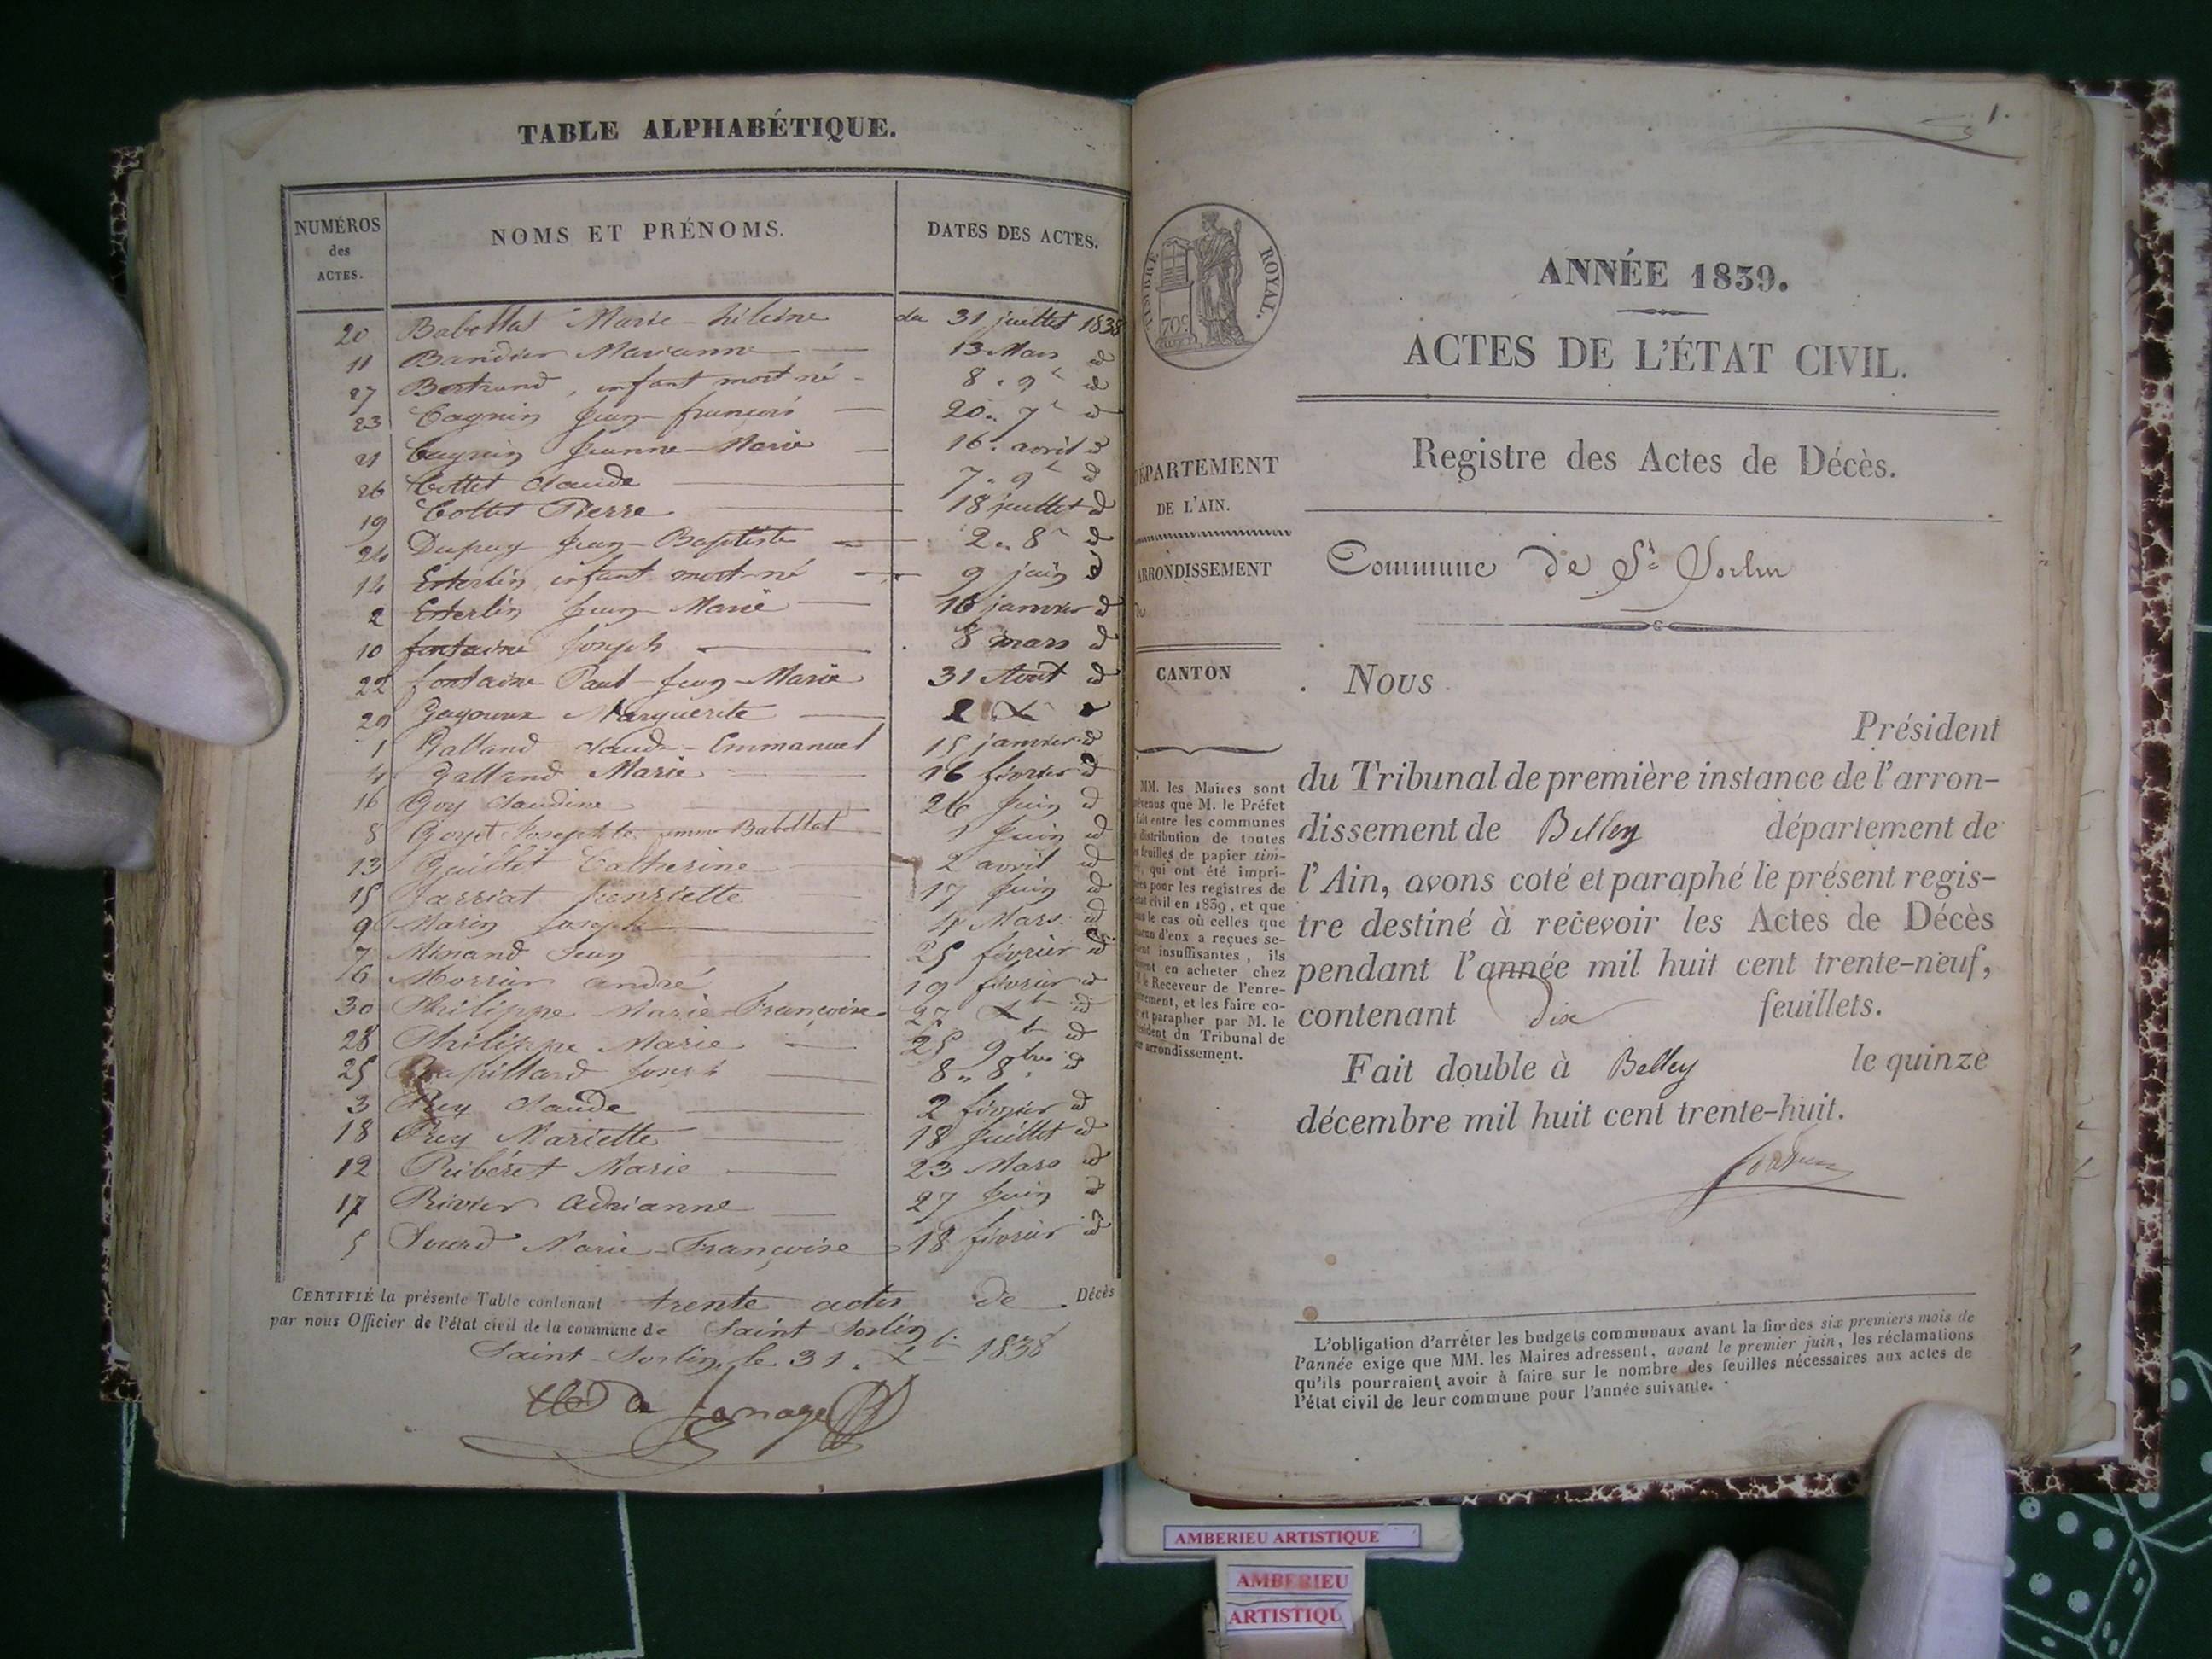 TABLE ALPHABÉTIQUE.
NUMÉROS des ACTES. NOMS ET PRÉNOMS. DATES DES ACTES.
20 Babollat Marie-hélène du 31 juillet 1838
11 Baridier Marianne 13 Mars id
27 Bertrand, enfant mort né 8. 9e id
23 Cagnin Jean-françois 20. 7e id
21 Cagnin Jeanne-Marie 16. avril id
26 Cottet Claude 7. 9e id
19 Cottet Pierre 18 juillet id
24 Dupuy Jean-Baptiste 2. 8e id
14 Esterlin, enfant mort-né 9 juin id
2 Esterlin Jean-Marie 16 janvier id
10 fontaine Joseph 8 mars id
22 fontaine Paul-Jean-Marie 31 Aout id
29 Marguerite 2 X id
1 Galland Claude-Emmanuel 15 janvier id
4 Galland Marie 16 février id
16 Goy Claudine 26 Juin id
8 Goyet Josephte 1 Juin id
13 Guillet Catherine 2 avril id
15 Jarriat henriette 17 Juin id
9 Marin Joseph 4 Mars id
7 Minand Jean 25 février id
6 André 19 février id
30 Philippe Marie Françoise 27 Xb id
28 Philippe Marie 25 9b id
25 8.. 8bre id
3 Rey Claude 2 février id
18 Rey Mariette 18 Juillet id
12 Ribéret Marie 23 Mars id
17 Rivier Adrianne 27 Juin id
5 Sourd Marie-Françoise 18 février id
CERTIFIÉ la présente Table contenant trente actes de Décès
par nous Officier de l'état civil de la commune de Saint-Sorlin
Saint-Sorlin, le 31. Xb 1838
1.
TIMBRE ROYAL.
70c
ANNÉE 1839.
ACTES DE L'ÉTAT CIVIL.
Registre des Actes de Décès.
DÉPARTEMENT
DE L'AIN.
ARRONDISSEMENT
CANTON
Commune de St Sorlin
Nous
Président
du Tribunal de première instance de l'arron-
dissement de Belley département de
l'Ain, avons coté et paraphé le présent regis-
tre destiné à recevoir les Actes de Décès
pendant l'année mil huit cent trente-neuf,
contenant dix feuillets.
Fait double à Belley le quinze
décembre mil huit cent trente-huit.
MM. les Maires sont
prévenus que M. le Préfet
fait entre les communes
la distribution de toutes
les feuilles de papier tim-
bré, qui ont été impri-
mées pour les registres de
l'état civil en 1839, et que
dans le cas où celles que
chacun d'eux a reçues se-
raient insuffisantes, ils
doivent en acheter chez
M. le Receveur de l'enre-
gistrement, et les faire co-
ter et parapher par M. le
Président du Tribunal de
leur arrondissement.
L'obligation d'arrêter les budgets communaux avant la fin des six premiers mois de
l'année exige que MM. les Maires adressent, avant le premier juin, les réclamations
qu'ils pourraient avoir à faire sur le nombre des feuilles nécessaires aux actes de
l'état civil de leur commune pour l'année suivante.
AMBERIEU ARTISTIQUE
AMBERIEU
ARTISTIQU